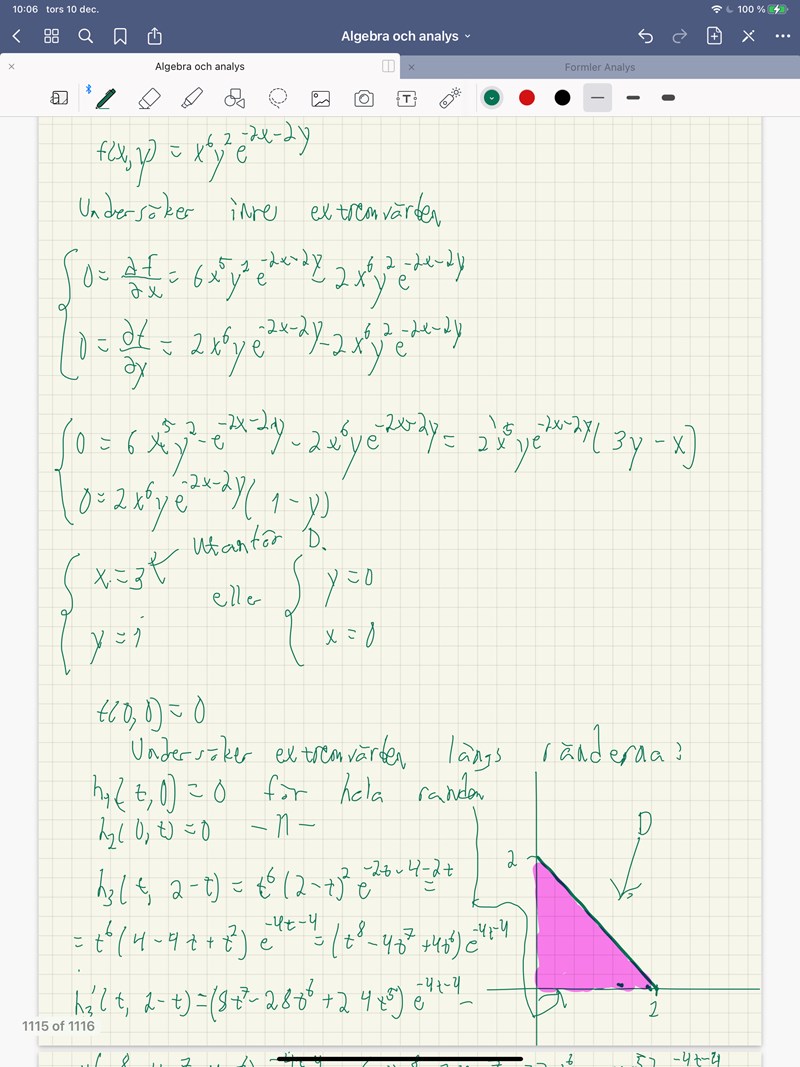 10:06 tors 10 dec.
100 %
Algebra och analys
Algebra och analys
Formler Analys
f(x,y) = x⁶y²e^{-2x-2y}
Undersöker inre extremvärden
0 = ∂f/∂x = 6x⁵y²e^{-2x-2y} - 2x⁶y²e^{-2x-2y}
0 = ∂f/∂y = 2x⁶ye^{-2x-2y} - 2x⁶y²e^{-2x-2y}
0 = 6x⁵y²e^{-2x-2y} - 2x⁶ye^{-2x-2y} = 2x⁵ye^{-2x-2y}(3y-x)
0 = 2x⁶ye^{-2x-2y}(1-y)
utanför D.
x = 3
y = 1
eller
y = 0
x = 0
f(0,0) = 0
Undersöker extremvärden längs ränderna:
h₁(t,0) = 0 för hela randen
h₂(0,t) = 0 -n-
h₃(t, 2-t) = t⁶(2-t)²e^{-2t-4-2t} =
= t⁶(4-4t+t²)e^{-4t-4} = (t⁸-4t⁷+4t⁶)e^{-4t-4}
h₃'(t, 2-t) = (8t⁷-28t⁶+24t⁵)e^{-4t-4} -
D
2
2
1115 of 1116